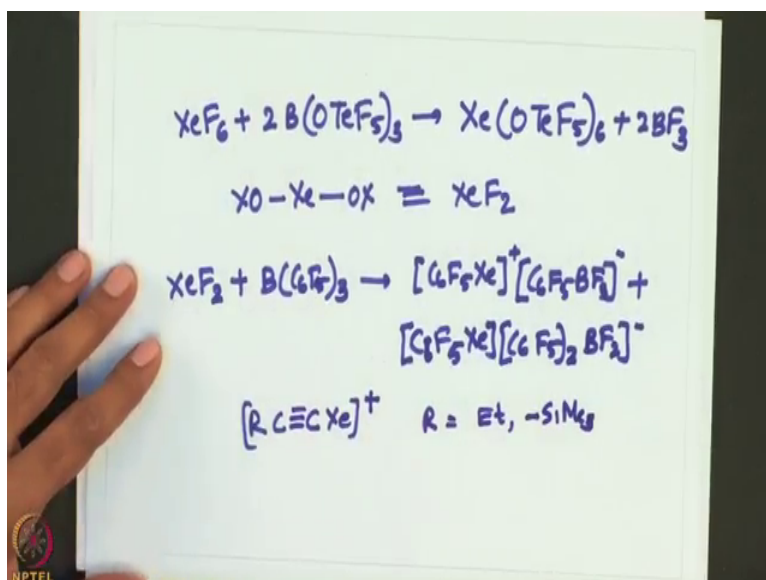 XeF₆ + 2 B(OTeF₅)₃ → Xe(OTeF₅)₆ + 2BF₃
XO-Xe-OX = XeF₂
XeF₂ + B(C₆F₅)₃ → [C₆F₅Xe]⁺[C₆F₅BF₃]⁻ +
[C₆F₅Xe][(C₆F₅)₂BF₂]⁻
[RC≡CXe]⁺ R = Et, -SiMe₃
NPTEL